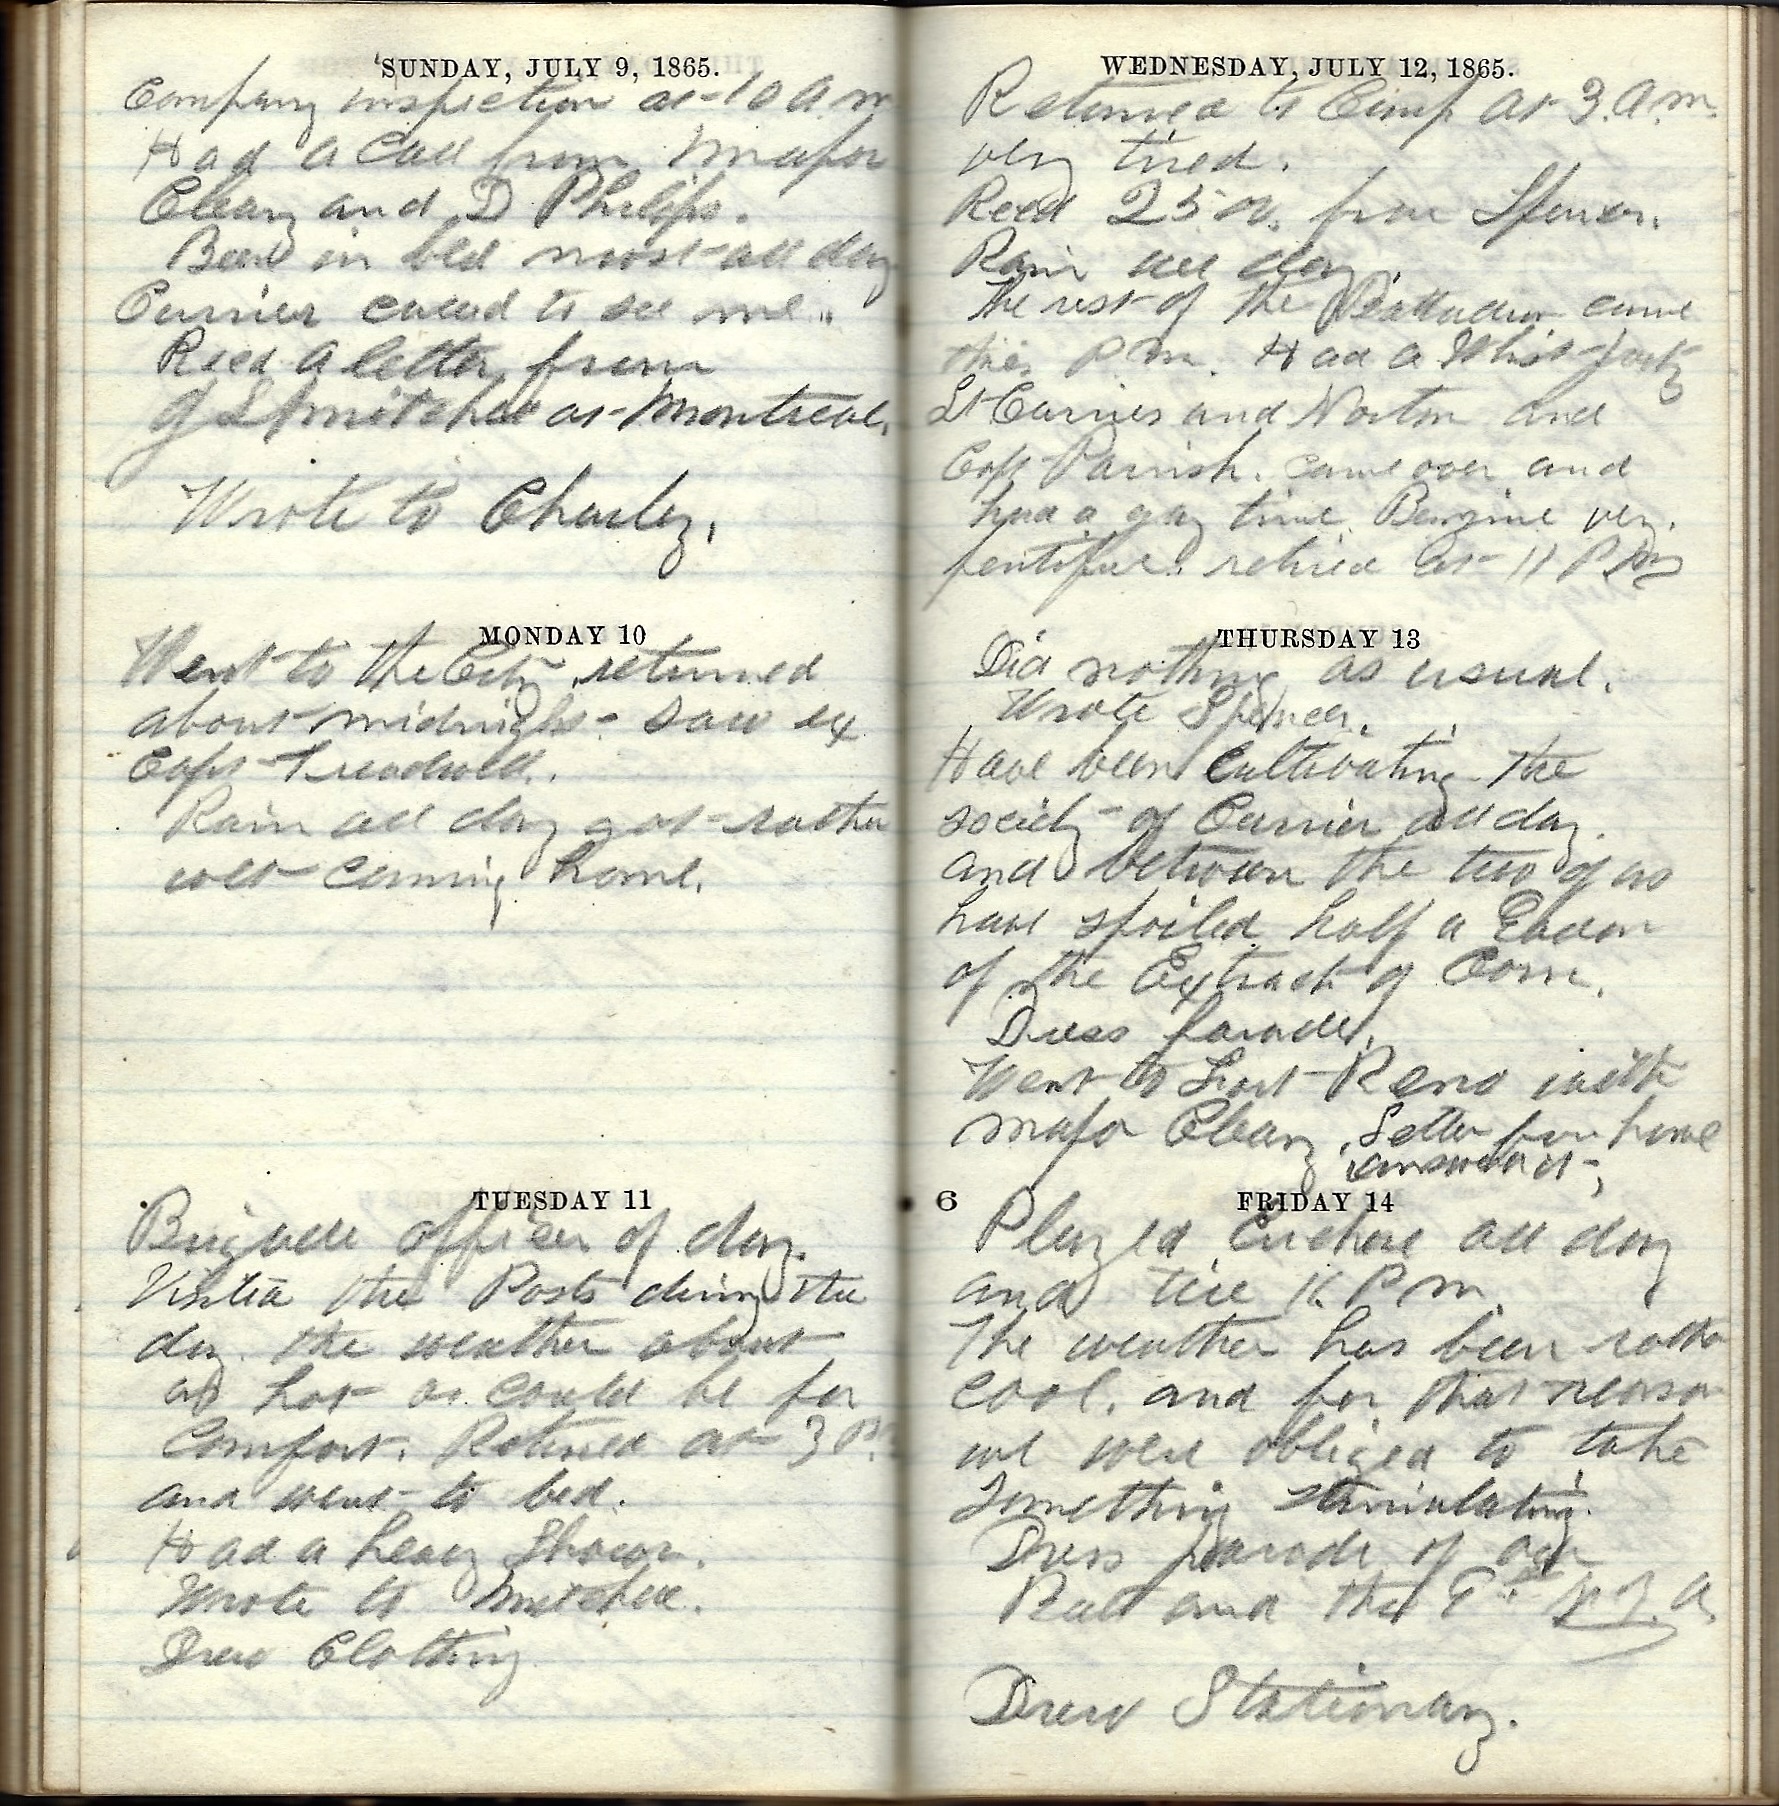 SUNDAY, JULY 9, 1865.
Company inspection at 10 a m
Had a Call from Major
Cleary and D Philips.
Been in bed most all day
Currier called to see me.
Recd a letter from
Mitchell at Montreal.
Wrote to Charley.
MONDAY 10
Went to the City returned
about midnight - saw ex
Capt Treadwell.
Rain all day got rather
wet coming home.
TUESDAY 11
Brigade officer of day.
Visited the Posts during the
day. the weather about
as hot as could be for
Comfort. Retired at 3 P.
and went to bed.
Had a heavy Shower.
Wrote to Mitchell.
Drew Clothing
WEDNESDAY, JULY 12, 1865.
Returned to Camp at 3. a.m.
very tired.
Recd 25 from Spencer.
Rain all day.
The rest of the Battalion came
this P.M. Had a Whist party
Lt Currier and Norton and
Capt Parrish. came over and
had a gay time. very
retired at 11 PM
THURSDAY 13
Did nothing as usual.
Wrote Spencer.
Have been Cultivating the
society of Currier all day.
and between the two of us
have spoiled half a
of the Extract of Corn.
Dress parade.
Went to Fort Reno with
Major Cleary. Letter from home
answered it
6
FRIDAY 14
Played Euchere all day
and till 11. P m.
The weather has been rather
cool. and for that reason
we were obliged to take
something stimulating.
Dress parade of our
Batt and the 9th N.Y. A.
Drew Stationary.